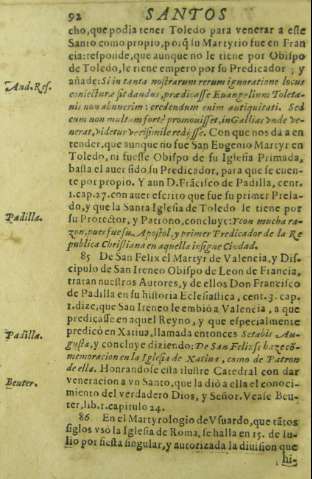 92 SANTOS
cho, que podia tener Toledo para venerar a este
Santo como propio, porq̃ su Martyrio fue en Fran
cia: responde, que aunque no le tiene por Obispo
de Toledo, le tiene empero por su Predicador; y
And. Res.
añade: Si in tanta nostrarum rerum ignoratione locus
coniecturæ sit dandus, prædicasse Euangelium Toleta-
nis non abnuerim: credendum enim antiquitati. Sed
cum non multum forte promouisset, in Gallias unde ve-
nerat, videtur verisimile redijsse. Con que nos da a en
tender, que aunque no fue San Eugenio Martyr en
Toledo, ni fuesse Obispo de su Iglesia Primada,
basta el auer sido su Predicador, para que se cuen-
te por propio. Y aun D. Frãcisco de Padilla, cent.
1. cap. 27. con auer escrito que fue su primer Prela-
do, y que la Santa Iglesia de Toledo le tiene por
Padilla.
su Protector, y Patrono, concluye: Y con mucha ra-
zon, pues fue su Apostol, y primer Predicador de la Re
publica Christiana en aquella insigne Ciudad.
85 De San Felix el Martyr de Valencia, y Dis-
cipulo de San Ireneo Obispo de Leon de Francia,
tratan nuestros Autores, y de ellos Don Francisco
de Padilla en su historia Eclesiastica, cent. 3. cap.
1. dize, que San Ireneo le embiò a Valencia, a que
predicasse en aquel Reyno, y que especialmente
predicò en Xatiua, llamada entonces Setabis Au-
Padilla.
gusta, y concluye diziendo: De San Felix se haze cõ-
memoracion en la Iglesia de Xatiua, como de Patron
de ella. Honrandose esta ilustre Catedral con dar
Beuter.
veneracion a vn Santo, que la diò a ella el conoci-
miento del verdadero Dios, y Señor. Vease Beu-
ter, lib. 1. capitulo 24.
86 En el Martyrologio de Vsuardo, que tãtos
siglos vsò la Iglesia de Roma, se halla en 15. de Iu-
lio por fiesta singular, y autorizada la diuision que
hi-